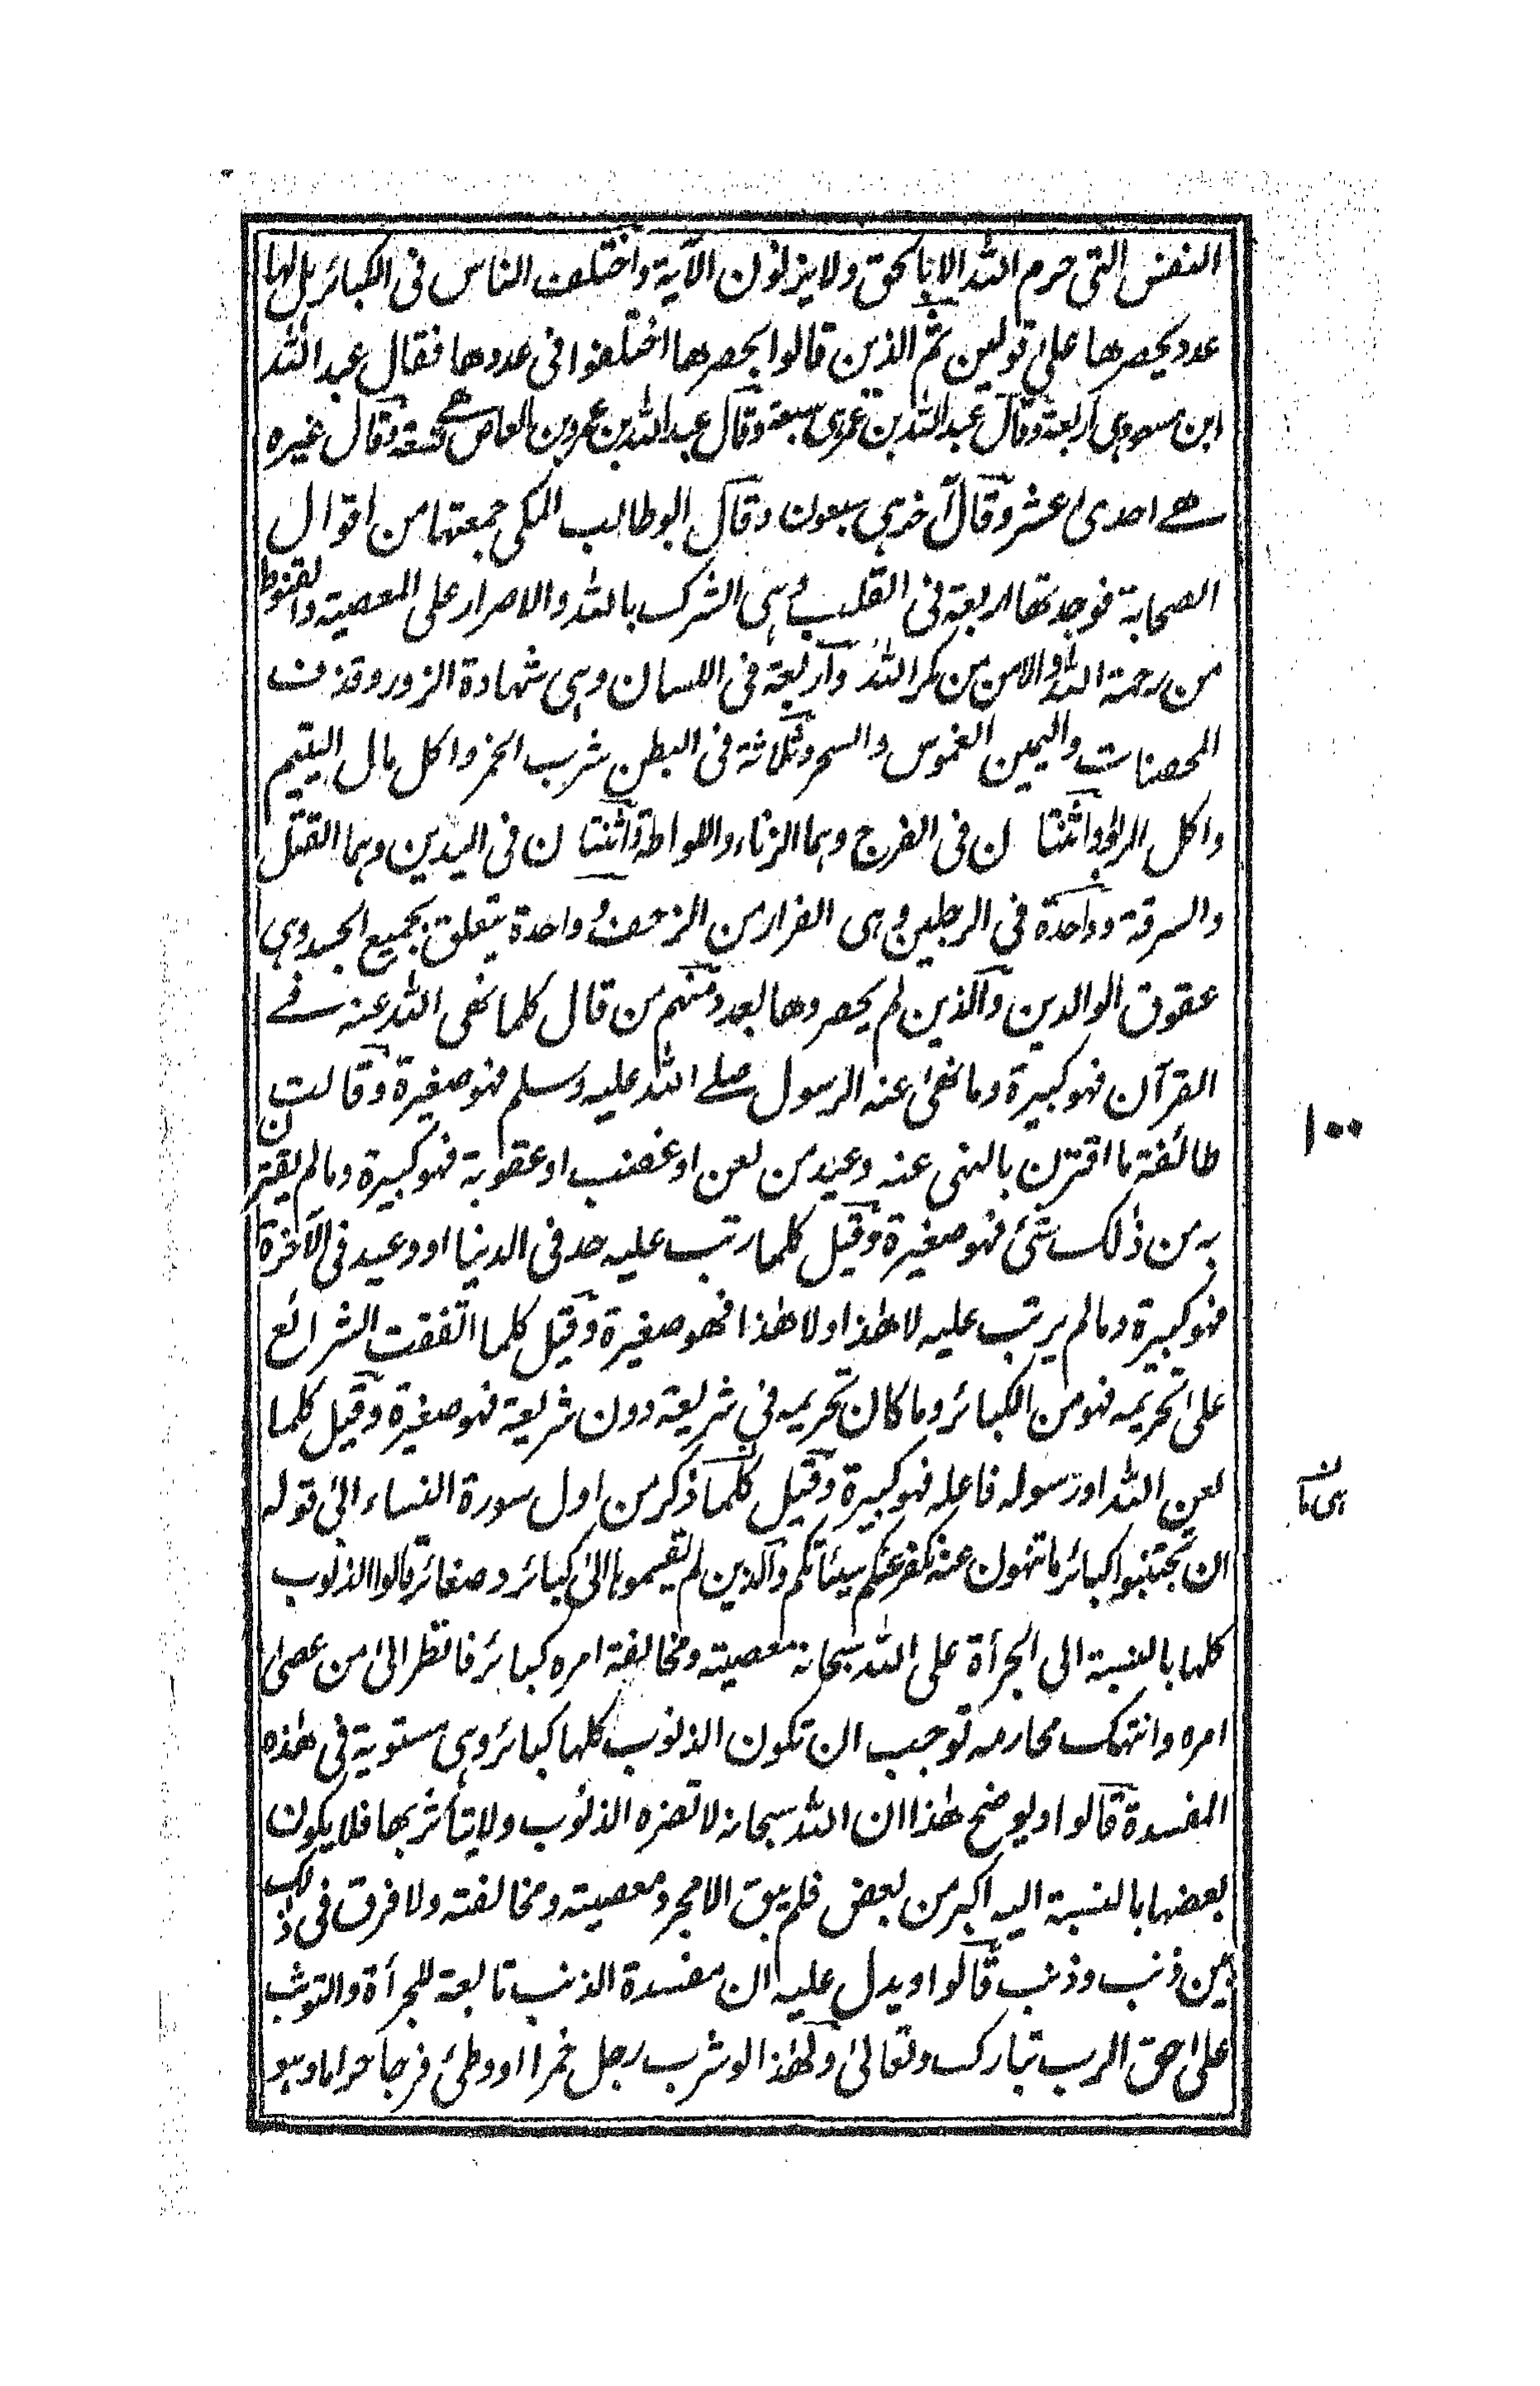 النفس التى حرم الله الا بالحق ولا يزنون الآية واختلف الناس فى الكبائر بل لها
عدد يحصرها على قولين ثم الذين قالوا بحصرها اختلفوا فى عددها فقال عبد الله
ابن مسعود هى اربعة وقال عبد الله بن عمر هى سبعة وقال عبد الله بن عمرو بن العاص هى تسعة وقال غيره
هى احدى عشر وقال آخر هى سبعون وقال ابو طالب المكى جمعتها من اقوال
الصحابة فوجدتها اربعة فى القلب وهى الشرك بالله والاصرار على المعصية والقنوط
من رحمة الله والامن من مكر الله واربعة فى اللسان وهى شهادة الزور وقذف
المحصنات واليمين الغموس والسحر وثلاثة فى البطن شرب الخمر واكل مال اليتيم
واكل الربو واثنتان فى الفرج وهما الزناء واللواطة واثنتان فى اليدين وهما القتل
والسرقة وواحدة فى الرجلين وهى الفرار من الزحف وواحدة يتعلق بجميع الجسد وهى
عقوق الوالدين والذين لم يحصروها بعدد منهم من قال كلما نهى الله عنه فى
القرآن فهو كبيرة وما نهى عنه الرسول صلى الله عليه وسلم فهو صغيرة وقالت
طائفة ما اقترن بالنهى عنه وعيد من لعن او غضب او عقوبة فهو كبيرة وما لم يقترن
به من ذلك شئ فهو صغيرة وقيل كلما رتب عليه حد فى الدنيا او وعيد فى الآخرة
فهو كبيرة وما لم يرتب عليه لا هذا ولا هذا فهو صغيرة وقيل كلما اتفقت الشرائع
على تحريمه فهو من الكبائر وما كان تحريمه فى شريعة دون شريعة فهو صغيرة وقيل كلما
لعن الله او رسوله فاعله فهو كبيرة وقيل كلما ذكر من اول سورة النساء الى قوله
ان تجتنبوا كبائر ما تنهون عنه نكفر عنكم سيئاتكم والذين لم يقسموها الى كبائر وصغائر قالوا الذنوب
كلها بالنسبة الى الجرأة على الله سبحانه معصيته ومخالفة امره كبائر فانظر الى من عصى
امره وانتهك محارمه توجب ان تكون الذنوب كلها كبائر وهى مستوية فى هذه
المفسدة قالوا ويوضح هذا ان الله سبحانه لا تضره الذنوب ولا يتأثر بها فلا يكون
بعضها بالنسبة اليه اكبر من بعض فلم يبق الا مجرد معصيته ومخالفته ولا فرق فى ذلك
بين ذنب وذنب قالوا ويدل عليه ان مفسدة الذنب تابعة للجرأة والتوثب
على حق الرب تبارك وتعالى ولهذا لو شرب رجل خمرا او وطئ فرجا حراما وهو
١٠٠